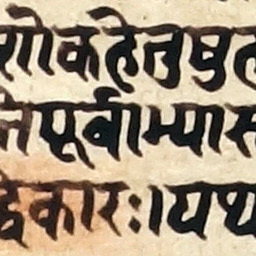 शोकहेतुषुत
तिपूर्वाभ्यास
द्विकारः।यथ